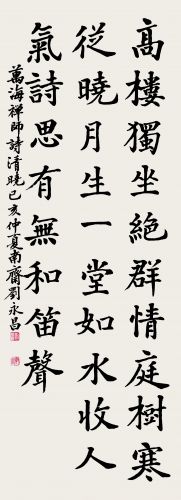 高樓獨坐絕群情庭樹寒
從曉月生一堂如水收人
氣詩思有無和笛聲
萬海禅師詩清曉己亥仲夏南齋劉永昌